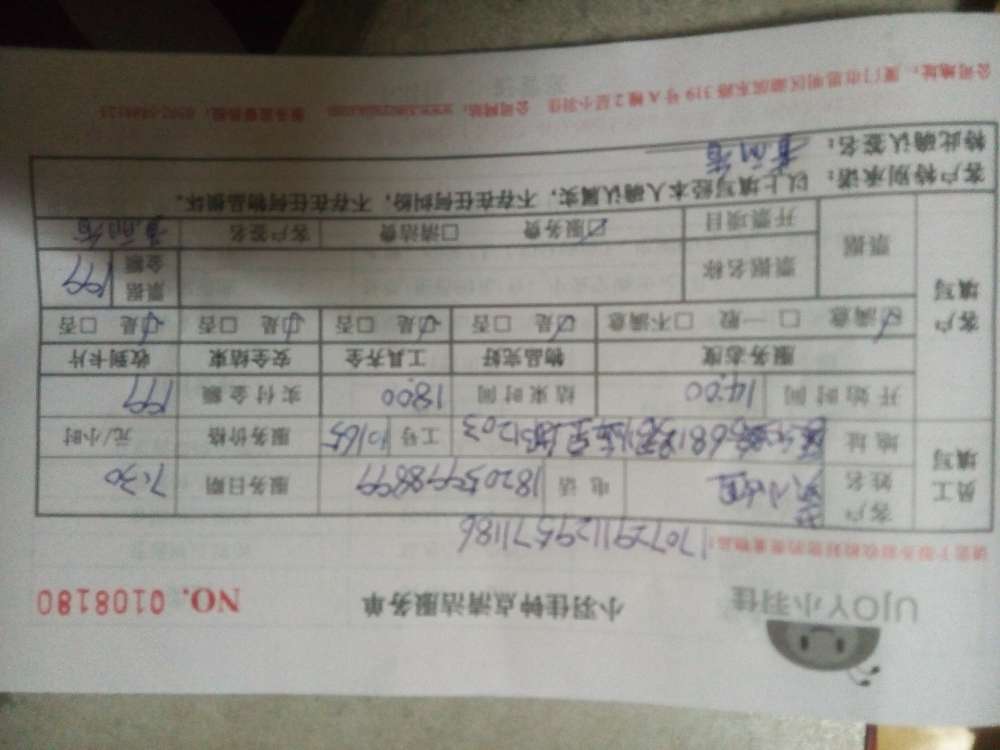 UJOY小羽佳
小羽佳钟点清洁服务单
NO. 0108180
请您于服务前收检好您的贵重物品:
1707291129571186
员工填写
客户姓名
电话
服务日期 7.30
地址
工号 10165
服务价格 元/小时
开始时间 14:00
结束时间 18:00
实付金额 199
客户填写
服务态度 物品完好 工具齐全 安全结束 收到卡片
☑满意 □一般 □不满意 ☑是 □否 ☑是 □否 ☑是 □否 ☑是 □否
票据
票据名称
票据金额 199
开票项目 ☑服务费 □清洁费 客户签名
客户特别承诺: 以上填写经本人确认属实,不存在任何纠纷,不存在任何物品损坏。
特此确认签名:
公司地址:厦门市思明区湖滨东路319号A幢2层小羽佳 公司网站: